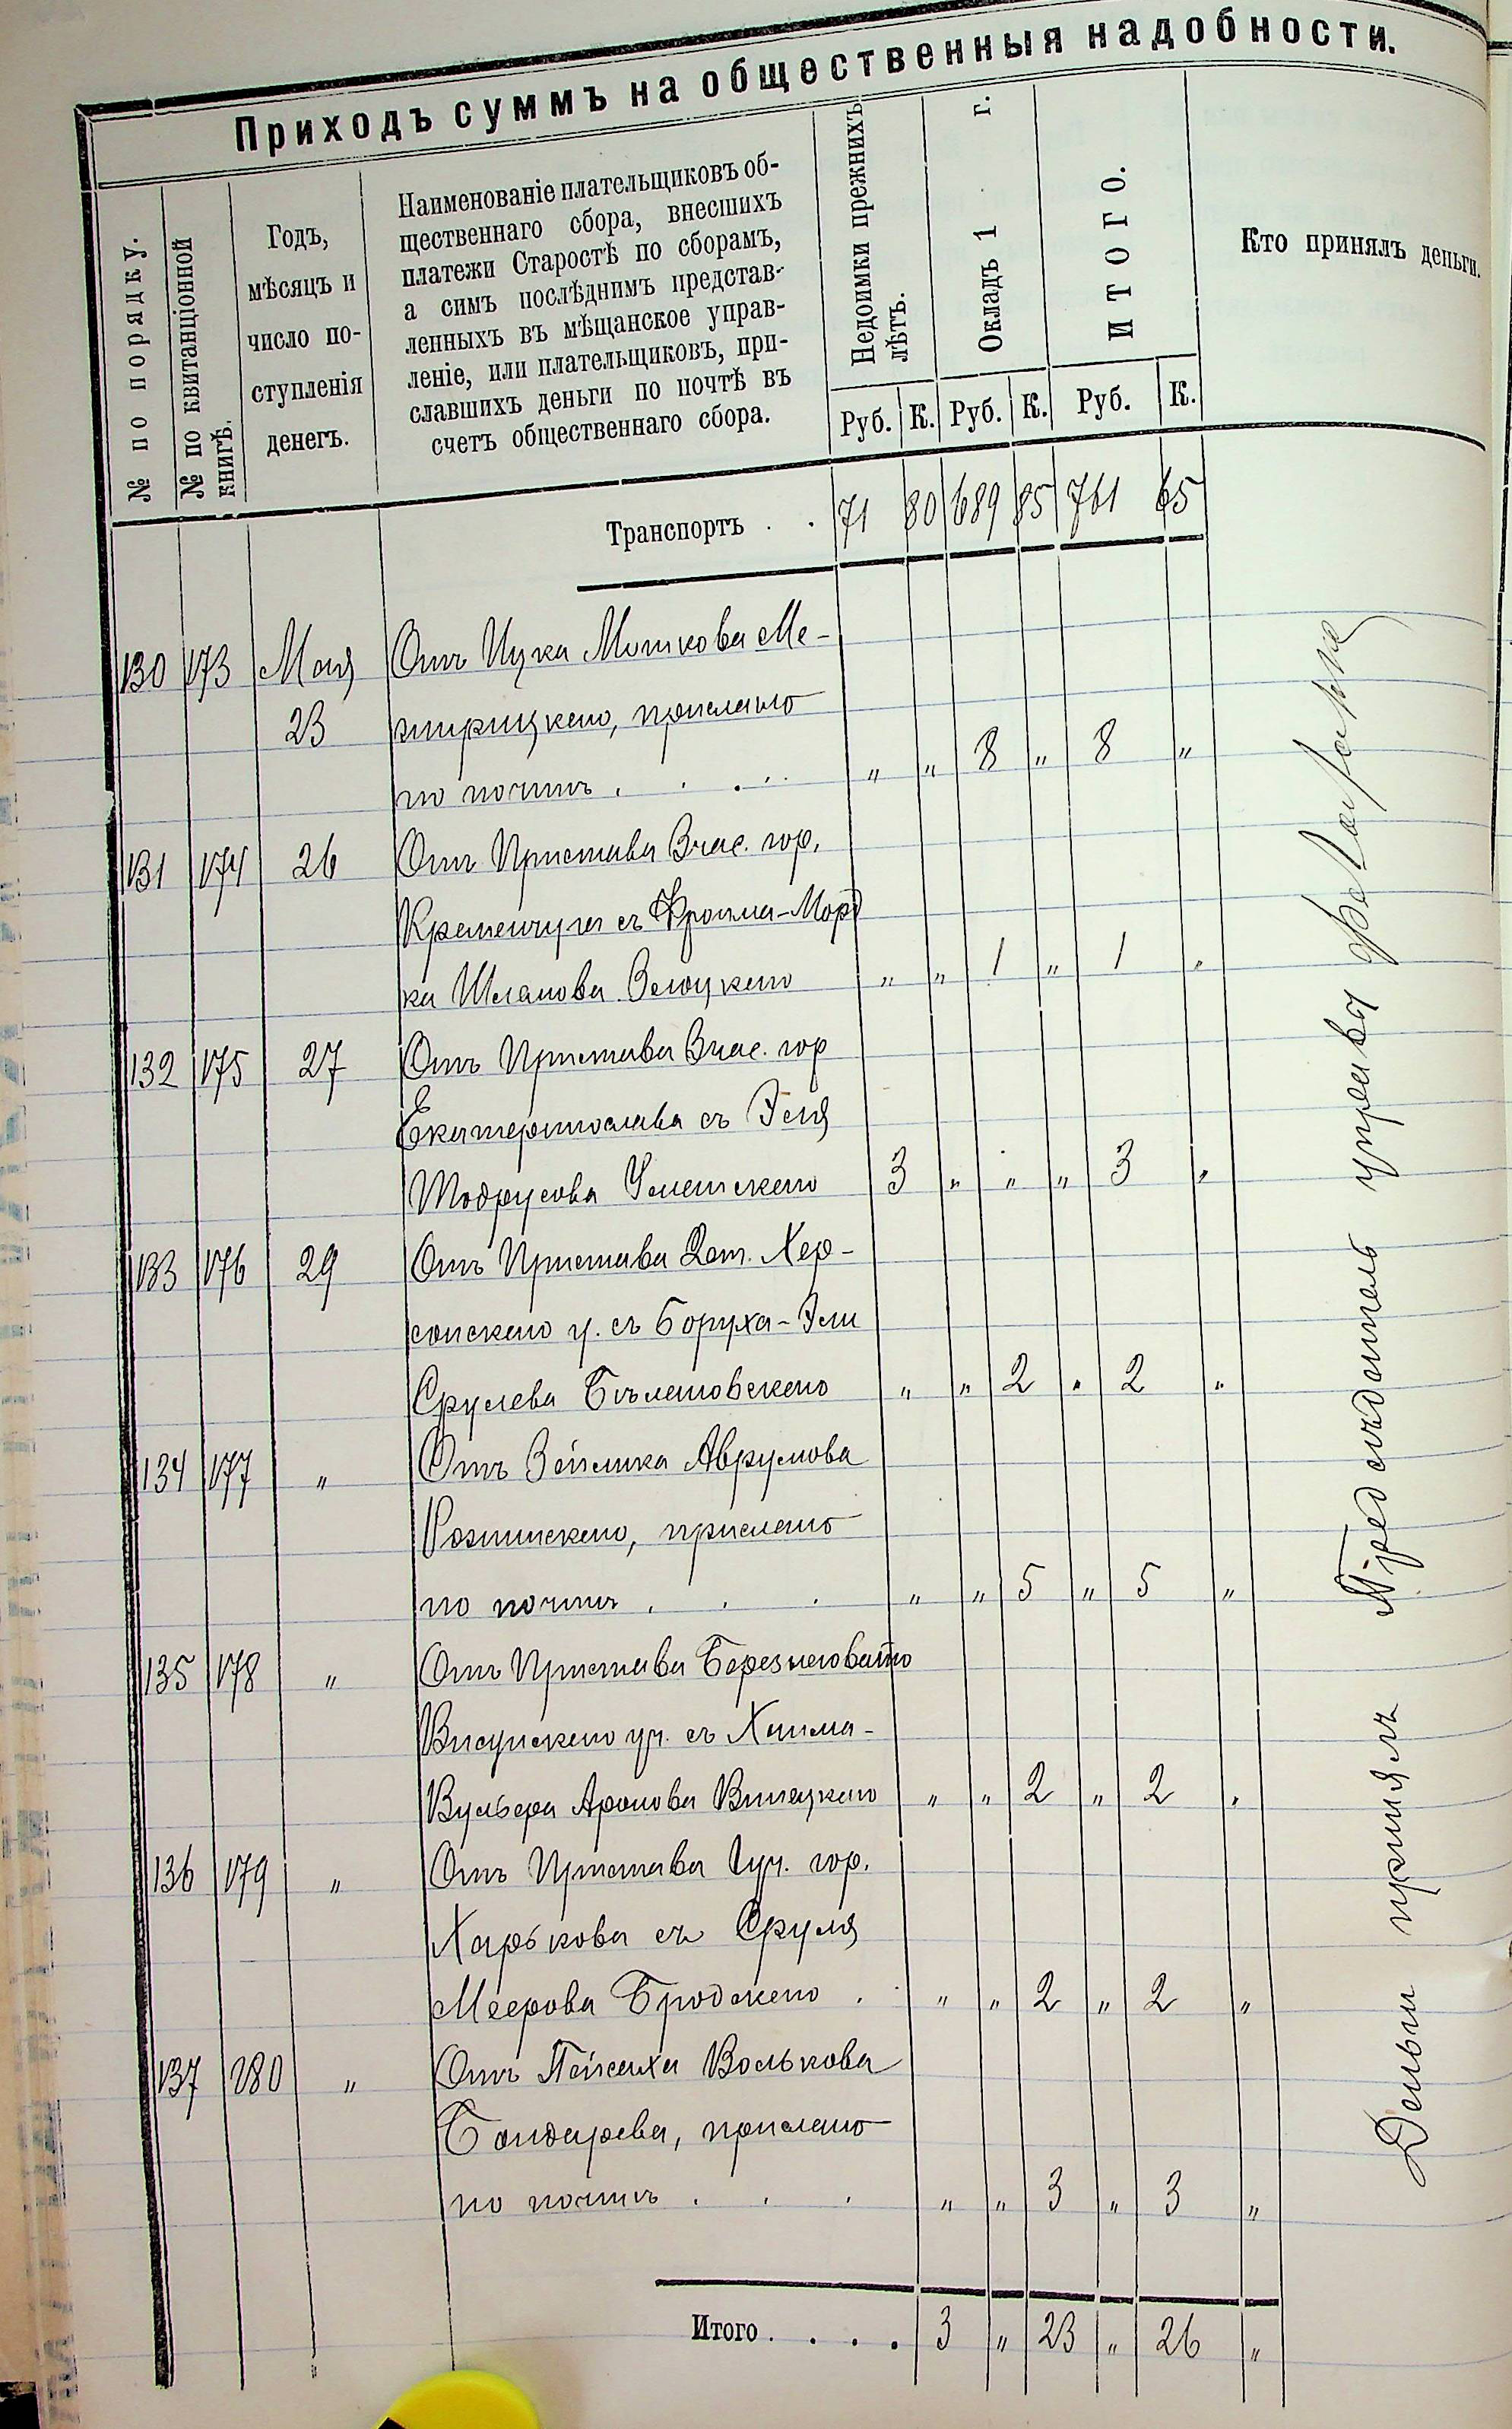 Приходъ суммъ на общественныя надобности.
№ по порядку.
№ по квитанціонной
книгѣ.
Годъ,
мѣсяцъ и
число по-
ступленія
денегъ.
Наименованіе плательщиковъ об-
щественнаго сбора, внесшихъ
платежи Старостѣ по сборамъ,
а симъ послѣднимъ представ-
ленныхъ въ мѣщанское управ-
леніе, или плательщиковъ, при-
славшихъ деньги по почтѣ въ
счетъ общественнаго сбора.
Недоимки прежнихъ
лѣтъ.
Окладъ 1 г.
ИТОГО.
Кто принялъ деньги.
Руб. К. Руб. К. Руб. К.
Транспортъ . . 71 80 689 85 761 65
130 173 Мая Отъ Ицка Мошкова Ме-
23 жирицкаго, прислано
по почтѣ . . . . " " 8 " 8 "
131 174 26 Отъ Пристава 3 час. гор.
Кременчуга съ Фроима-Мord
ка Шлемова " " 1 " 1 "
132 175 27 Отъ Пристава 3 час. гор
Екатеринослава съ Эля
Тодрусова 3 " " " 3 "
133 176 29 Отъ Пристава 2 ст. Хер-
сонскаго у. съ Боруха-Эли
Срулева " " 2 " 2 "
134 177 " Отъ Зейлика Аврумова
прислано
по почтѣ . . . " " 5 " 5 "
135 178 " Отъ Пристава Березнеговато
Висунскаго уч. съ Хаима-
Вульфа Аронова " " 2 " 2 "
136 179 " Отъ Пристава 1 уч. гор.
Харькова съ Сруля
Меерова Бродскаго . " " 2 " 2 "
137 180 " Отъ Пейсаха Волькова
Бондарева, прислано
по почтѣ . . . " " 3 " 3 "
Итого . . . . 3 " 23 " 26 "
Деньги принялъ Предсѣдатель управы